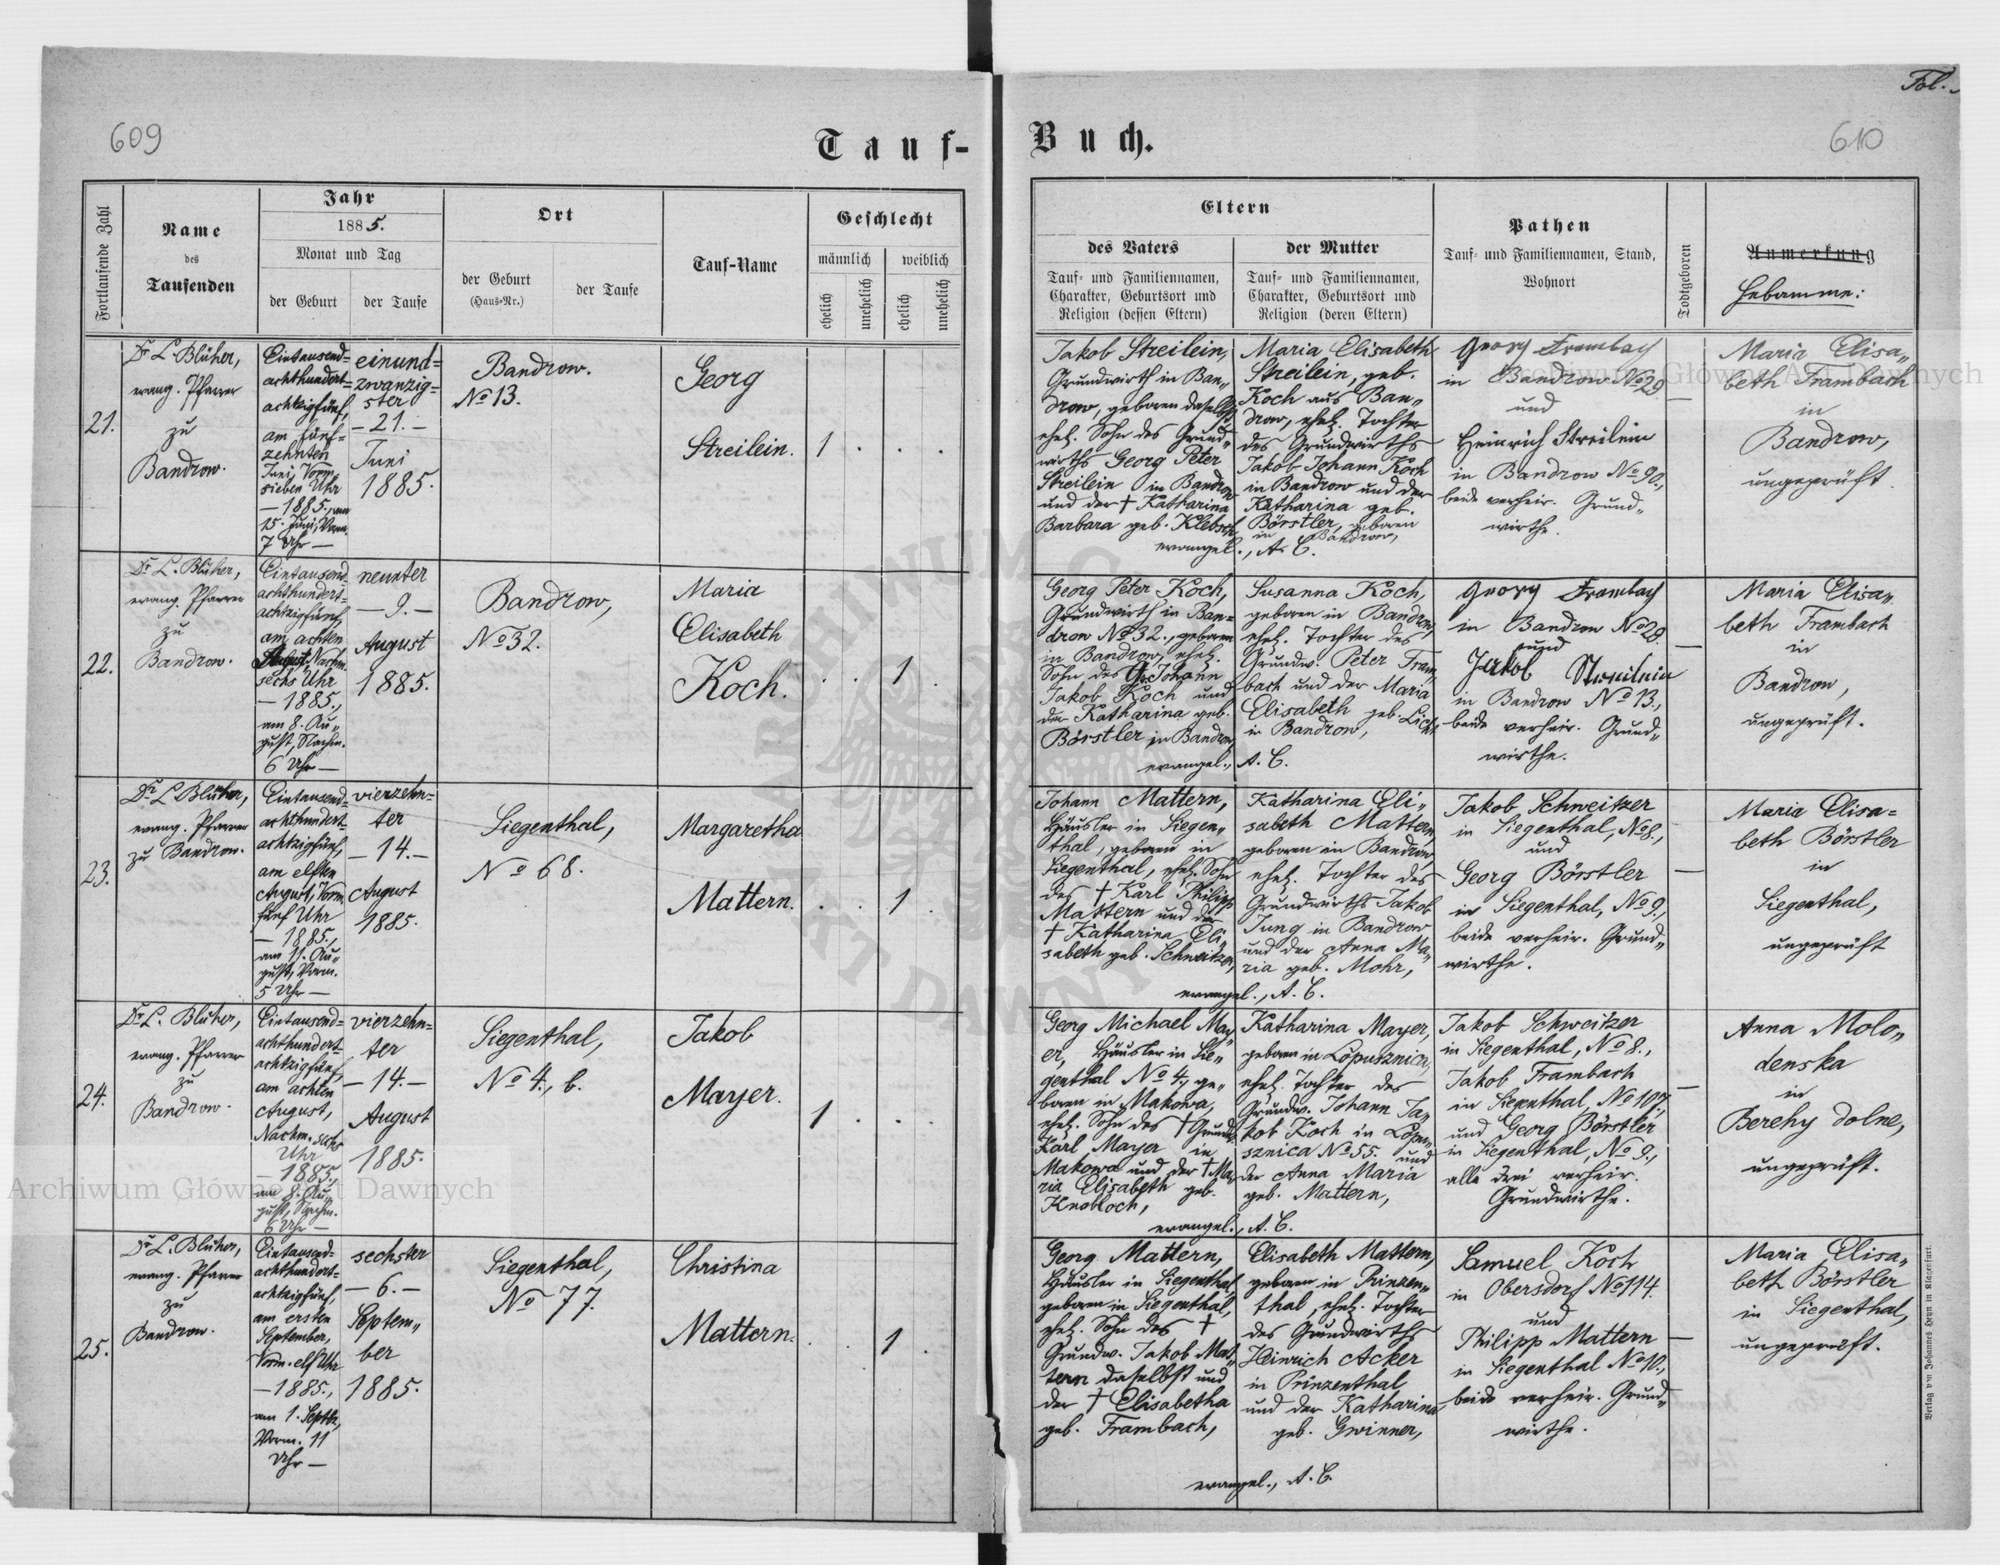 Fol.
609
Tauf-
Buch.
610
Fortlaufende Zahl
Name
des
Taufenden
Jahr
1885.
Monat und Tag
der Geburt
der Taufe
Ort
der Geburt
(Haus-Nr.)
der Taufe
Tauf-Name
Geschlecht
männlich
weiblich
ehelich
unehelich
ehelich
unehelich
Eltern
des Vaters
Tauf- und Familiennamen,
Charakter, Geburtsort und
Religion (dessen Eltern)
der Mutter
Tauf- und Familiennamen,
Charakter, Geburtsort und
Religion (deren Eltern)
Pathen
Tauf- und Familiennamen, Stand,
Wohnort
Todtgeboren
Anmerkung
Hebamme:
21.
Dr L. Blüher,
evang. Pfarrer
zu
Bandrow.
Eintausend-
achthundert-
achtzigfünf,
am fünf-
zehnten
Juni, Vorm.
sieben Uhr
— 1885., am
15. Juni, Vorm.
7 Uhr —
einund-
zwanzig-
ster
— 21. —
Juni
1885.
Bandrow.
No 13.
Georg
Streilein.
1 . . .
Jakob Streilein,
Grundwirth in Ban„
drow, geboren daselbst,
ehel. Sohn des Grund„
wirths Georg Peter
Streilein in Bandrow
und der † Katharina
Barbara geb. Klebsch,
Maria Elisabeth
Streilein, geb.
Koch aus Ban„
drow, ehel. Tochter
des Grundwirths
Jakob Johann Koch
in Bandrow und der
Katharina geb.
Börstler, geboren
in Bandrow,
evangel., A. C.
Georg Frambach
in Bandrow No 29
und
Heinrich Streilein
in Bandrow No 90.,
beide verheir. Grund„
wirthe.
—
Maria Elisa„
beth Frambach
in
Bandrow,
ungeprüft.
22.
Dr L. Blüher,
evang. Pfarrer
zu
Bandrow.
Eintausend-
achthundert-
achtzigfünf,
am achten
August, Nachm.
sechs Uhr
— 1885.,
am 8. Au„
gust, Nachm.
6 Uhr —
neunter
— 9. —
August
1885.
Bandrow,
No 32.
Maria
Elisabeth
Koch.
. . 1 .
Georg Peter Koch,
Grundwirth in Ban„
drow No 32., geboren
in Bandrow, ehel.
Sohn des Gr. Johann
Jakob Koch und
der Katharina geb.
Börstler in Bandrow,
Susanna Koch,
geboren in Bandrow,
ehel. Tochter des
Grundw. Peter Fram„
bach und der Maria
Elisabeth geb.
in Bandrow,
evangel., A. C.
Georg Frambach
in Bandrow No 29.
und
Jakob Streilein
in Bandrow No 13.,
beide verheir. Grund„
wirthe.
—
Maria Elisa„
beth Frambach
in
Bandrow,
ungeprüft.
23.
Dr L Blüher,
evang. Pfarrer
zu Bandrow.
Eintausend-
achthundert-
achtzigfünf,
am elften
August, Vorm.
fünf Uhr
— 1885.,
am 11. Au„
gust, Vorm.
5 Uhr —
vierzehn-
ter
— 14. —
August
1885.
Siegenthal,
No 68.
Margaretha
Mattern.
. . 1 .
Johann Mattern,
Häusler in Siegen„
thal, geboren in
Siegenthal, ehel. Sohn
des † Karl Philipp
Mattern und der
† Katharina Eli„
sabeth geb. Schweitzer,
Katharina Eli„
sabeth Mattern,
geboren in Bandrow,
ehel. Tochter des
Grundwirths Jakob
Jung in Bandrow
und der Anna Ma„
ria geb. Mohr,
evangel., A. C.
Jakob Schweitzer
in Siegenthal, No 8.,
und
Georg Börstler
in Siegenthal, No 9.,
beide verheir. Grund„
wirthe.
—
Maria Elisa=
beth Börstler
in
Siegenthal,
ungeprüft
24.
Dr L. Blüher,
evang. Pfarrer
zu
Bandrow.
Eintausend-
achthundert-
achtzigfünf,
am achten
August,
Nachm. sechs
Uhr
— 1885.,
am 8. Au„
gust, Nachm.
6 Uhr —
vierzehn-
ter
— 14. —
August
1885.
Siegenthal,
No 4., b.
Jakob
Mayer.
1 . . .
Georg Michael May„
er, Häusler in Sie„
genthal No 4., ge„
boren in Makowa,
ehel. Sohn des † Grundw.
Karl Mayer in
Makowa und der † Ma„
ria Elisabeth geb.
Knobloch,
Katharina Mayer,
geboren in Lopusznica,
ehel. Tochter des
Grundw. Johann Ja„
kob Koch in Lopu„
sznica No 55. und
der Anna Maria
geb. Mattern,
evangel., A. C.
Jakob Schweitzer
in Siegenthal, No 8.,
Jakob Frambach
in Siegenthal, No 107,
und Georg Börstler
in Siegenthal, No 9.,
alle drei verheir.
Grundwirthe.
—
Anna Molo„
denska
in
Berehy dolne,
ungeprüft.
25.
Dr L. Blüher,
evang. Pfarrer
zu
Bandrow.
Eintausend-
achthundert-
achtzigfünf,
am ersten
September,
Vorm. elf Uhr
— 1885.,
am 1. Septbr,
Vorm. 11
Uhr —
sechster
— 6. —
Septem„
ber
1885.
Siegenthal,
No 77.
Christina
Mattern.
. . 1 .
Georg Mattern,
Häusler in Siegenthal,
geboren in Siegenthal,
ehel. Sohn des †
Grundw. Jakob Mat„
tern daselbst und
der † Elisabetha
geb. Frambach,
Elisabeth Mattern,
geboren in Prinzen„
thal, ehel. Tochter
des Grundwirths
Heinrich Acker
in Prinzenthal
und der Katharina
geb. Gwinner,
evangel., A. C.
Samuel Koch
in Obersdorf No 114.
und
Philipp Mattern
in Siegenthal No 10.,
beide verheir. Grund„
wirthe.
—
Maria Elisa„
beth Börstler
in Siegenthal,
ungeprüft.
Verlag v m Johannes Heyn in Klagenfurt.
Archiwum Główne Akt Dawnych
Archiwum Główne Akt Dawnych
ARCHIWUM G
AKT DAWNY